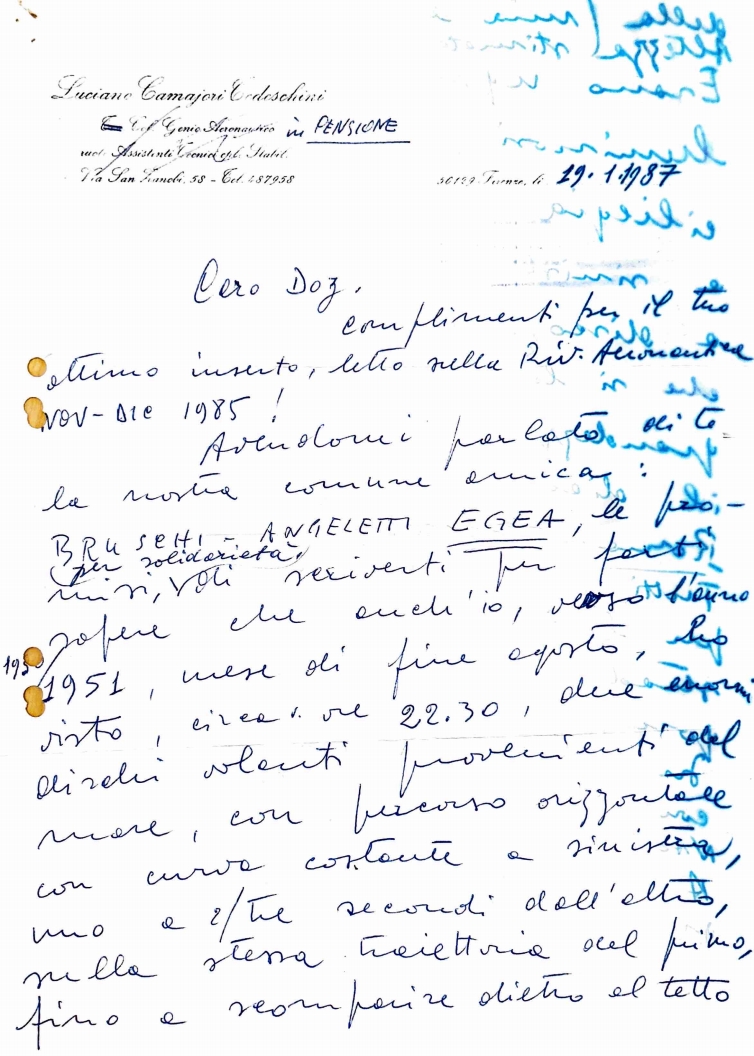 Luciano Camajori Tedeschini
Col. Genio Aeronautico in PENSIONE
ruolo Assistenti Tecnici
Via San Zanobi, 58 - Tel. 487958
50129 Firenze, li 19.1.1987
Caro Doz.
complimenti per il tuo
ottimo inserto, letto sulla Riv. Aeronautica
NOV-DIC 1985!
Avendomi parlato di te
la nostra comune amica:
BRUSCHI - ANGELETTI EGEA, le pro-
(per solidarietà)
misi, di scriverti per farti
sapere che anch'io, verso l'anno
1950
1951, mese di fine agosto, ho
visto, circa ore 22.30, due enormi
dischi volanti provenienti dal
mare, con percorso orizzontale
con curva costante a sinistra,
uno a 2/tre secondi dall'altro,
sulla stessa traiettoria del primo,
fino a scomparire dietro al tetto